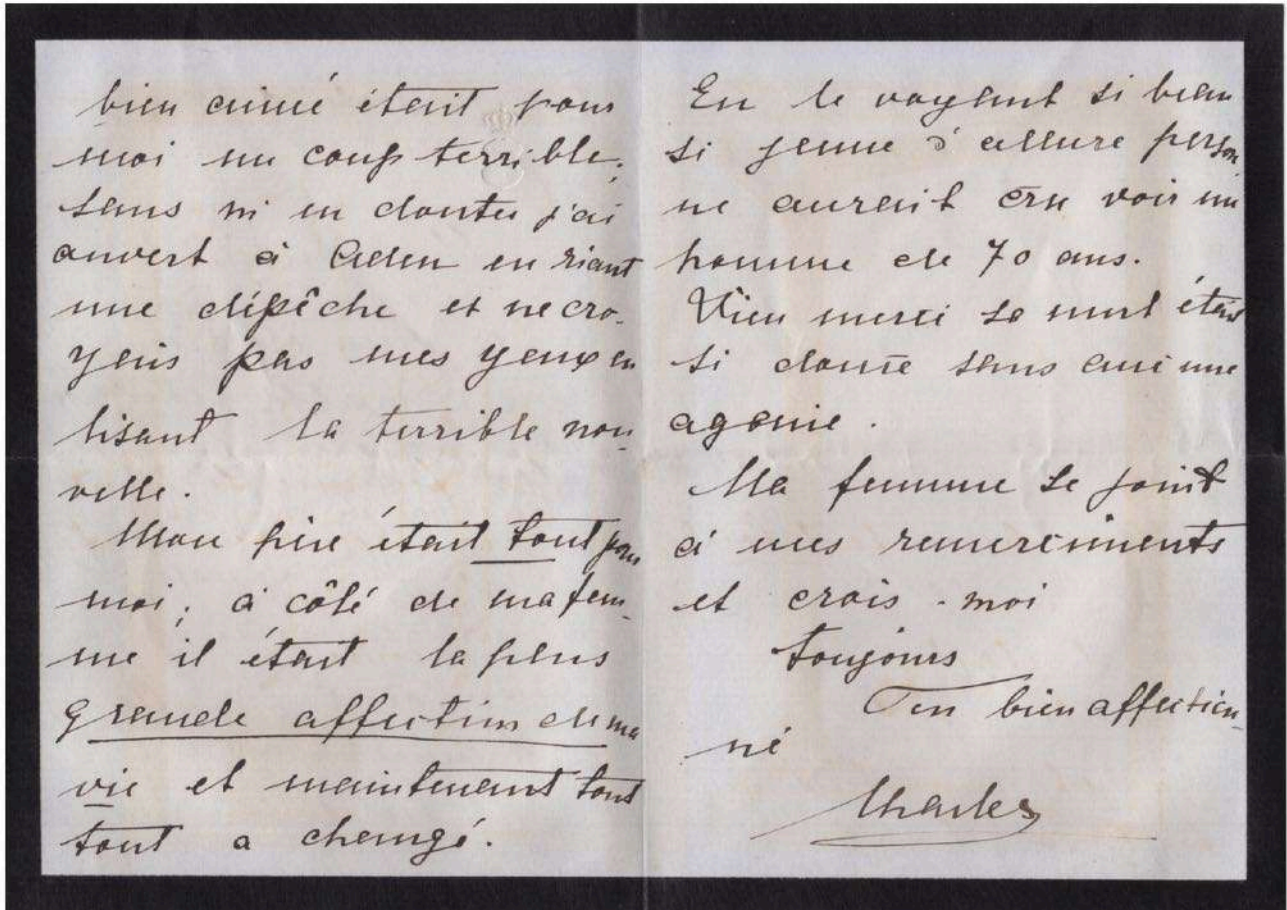 bien aimé était pour
moi un coup terrible;
sans m'en douter j'ai
ouvert à Aden en riant
une dépêche et necro-
yais pas mes yeux en
lisant la terrible nou
velle.
Mon père était tout pour
moi; à côté de ma fem-
me il était la plus
grande affection de ma
vie et maintenant tout
tout a changé.
En le voyant si beau
si jeune d'allure person
ne aurait cru voir un
homme de 70 ans.
Dieu merci sa mort était
si douce sans aucune
agonie.
Ma femme se joint
à mes remerciments
et crois-moi
toujours
Ton bien affection-
né
Charles